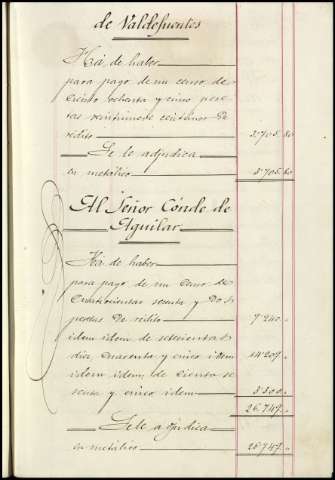 de Valdefuentes
Há de haber
para pago de un censo de
ciento ochenta y cinco pese
tas veintinueve centimos de
redito 3705.80
Se le adjudica
en metalico 3705.80
Al Señor Cónde de
Aguilar
Há de haber
para pago de un censo de
cuatrocientas sesenta y dos
pesetas de redito 9240."
idem idem de setecientas
diez, cuarenta y cinco idem 14209."
idem idem, de ciento se
senta y cinco idem 3300."
26.749."
Se le adjudica
en metalico 26749."